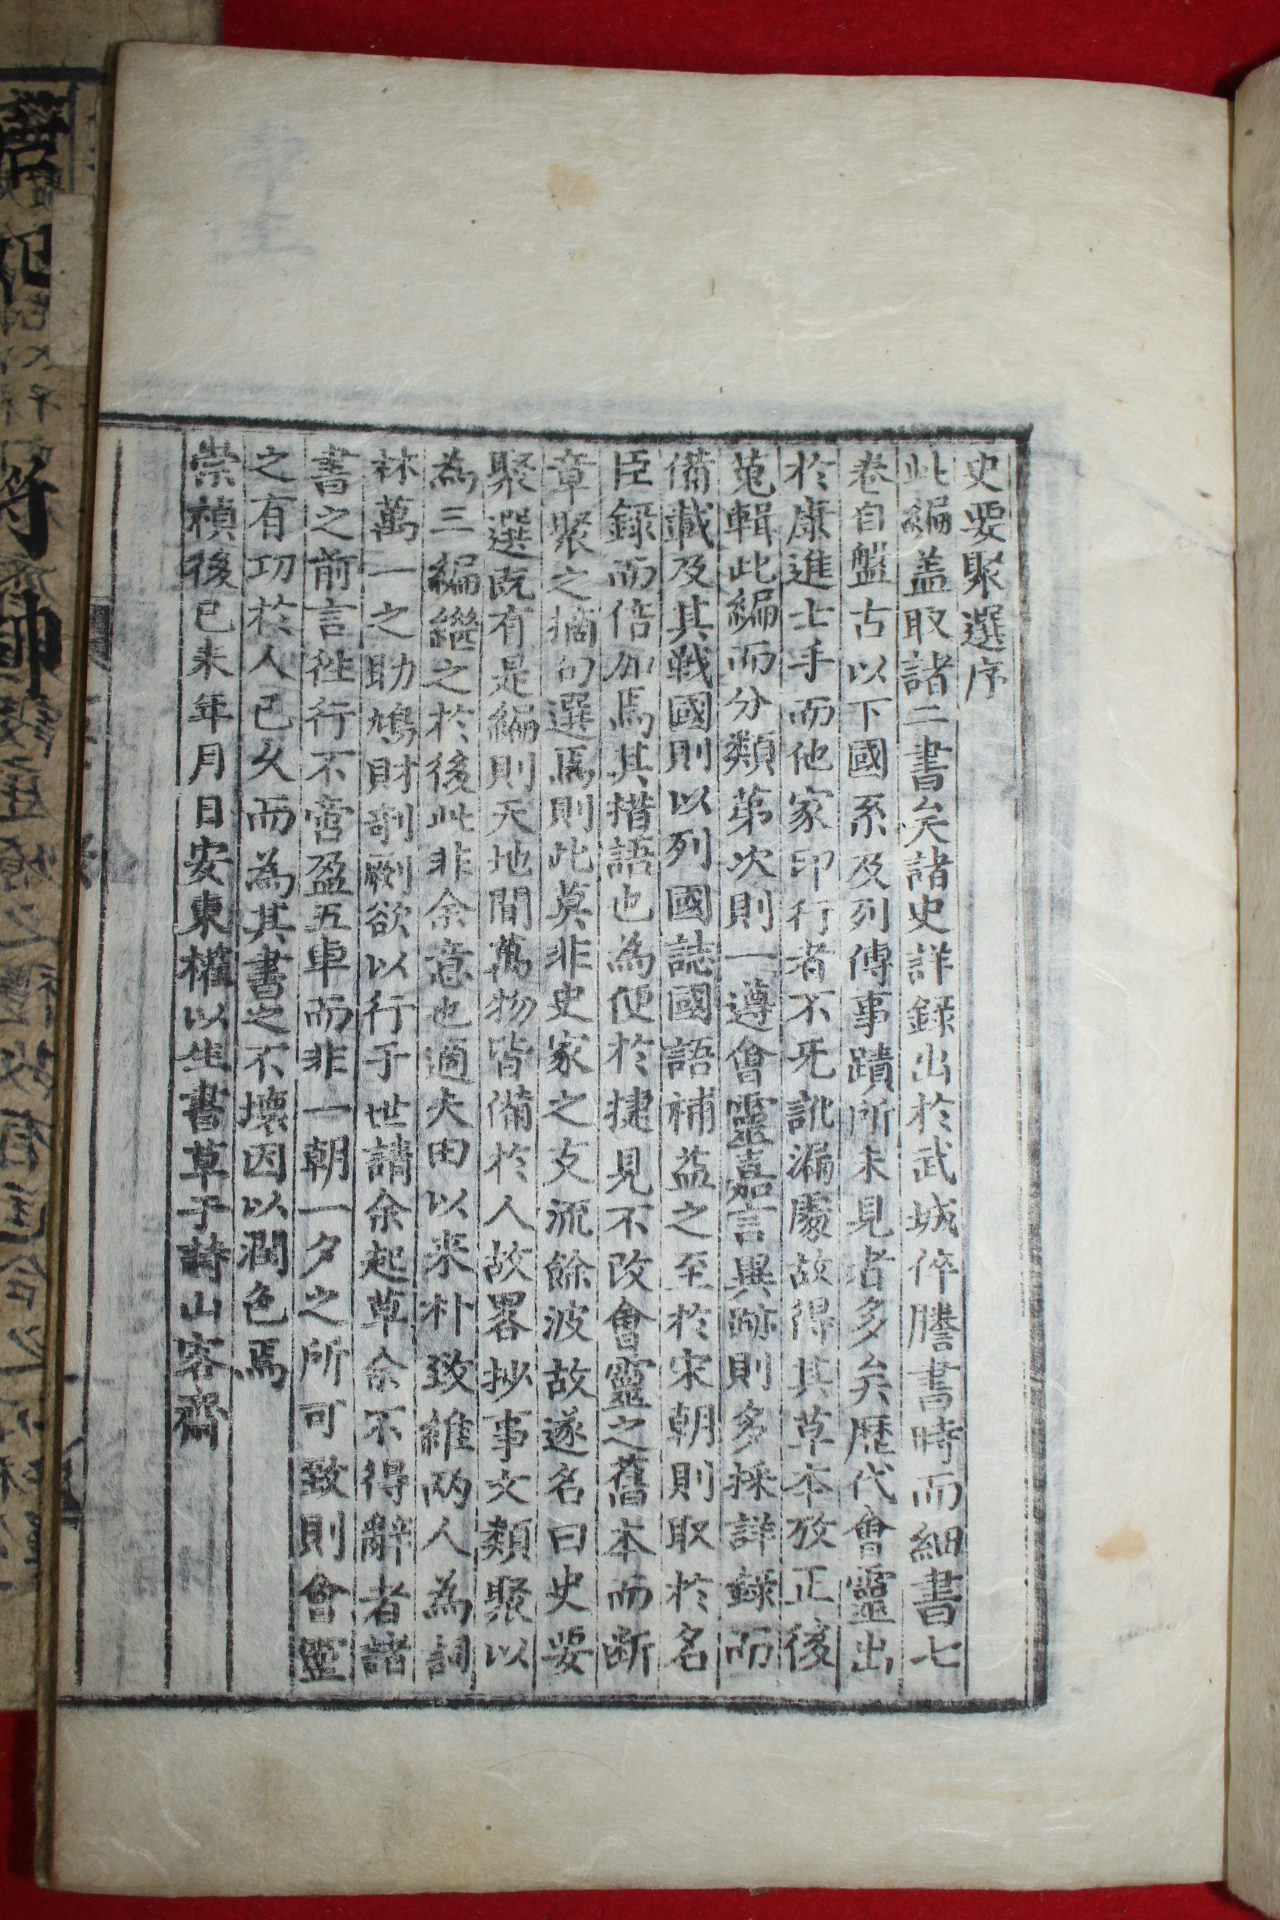 史要聚選序
此編盖取諸二書矣諸史詳錄出於武城倅謄書時而細書七
卷自盤古以下國系及列傳事蹟所未見者多矣歷代會靈出
於康進士手而他家印行者不旡訛漏處故得其草本攷正後
蒐輯此編而分類第次則一遵會靈嘉言異跡則多採詳錄而
備載及其戰國則以列國誌國語補益之至於宋朝則取於名
臣錄而倍加焉其措語也為便於捷見不改會靈之舊本而断
章聚之摘句選焉則此莫非史家之支流餘波故遂名曰史要
聚選旣有是編則天地間萬物皆備於人故畧抄事文類聚以
為三編繼之於後此非余意也適夫田以采朴致維两人為詞
林萬一之助鳩財剞劂欲以行于世請余起草余不得辭者諸
書之前言徃行不啻盈五車而非一朝一夕之所可致則會靈
之有功於人已久而為其書之不壊因以潤色焉
崇禎後己未年月日安東權以生書草于詩山客齋